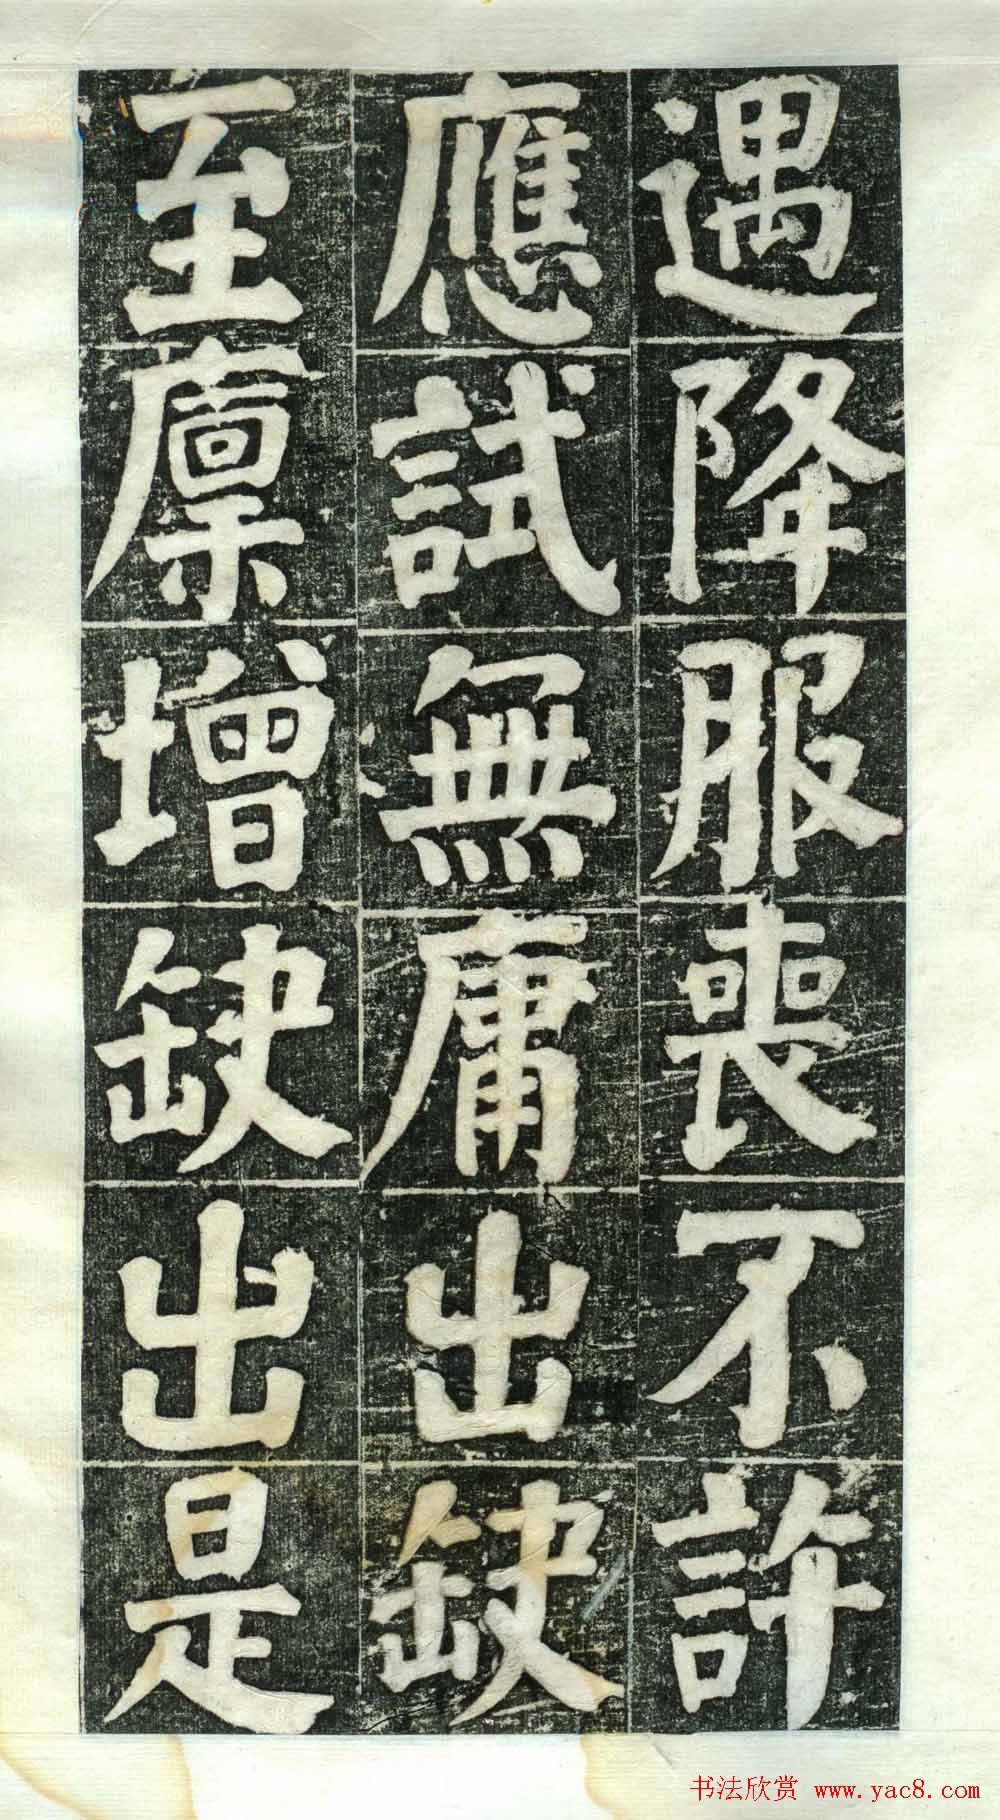 遇降服喪不許
應試無庸出缺
至廪增缺出是
书法欣赏 www.yac8.com